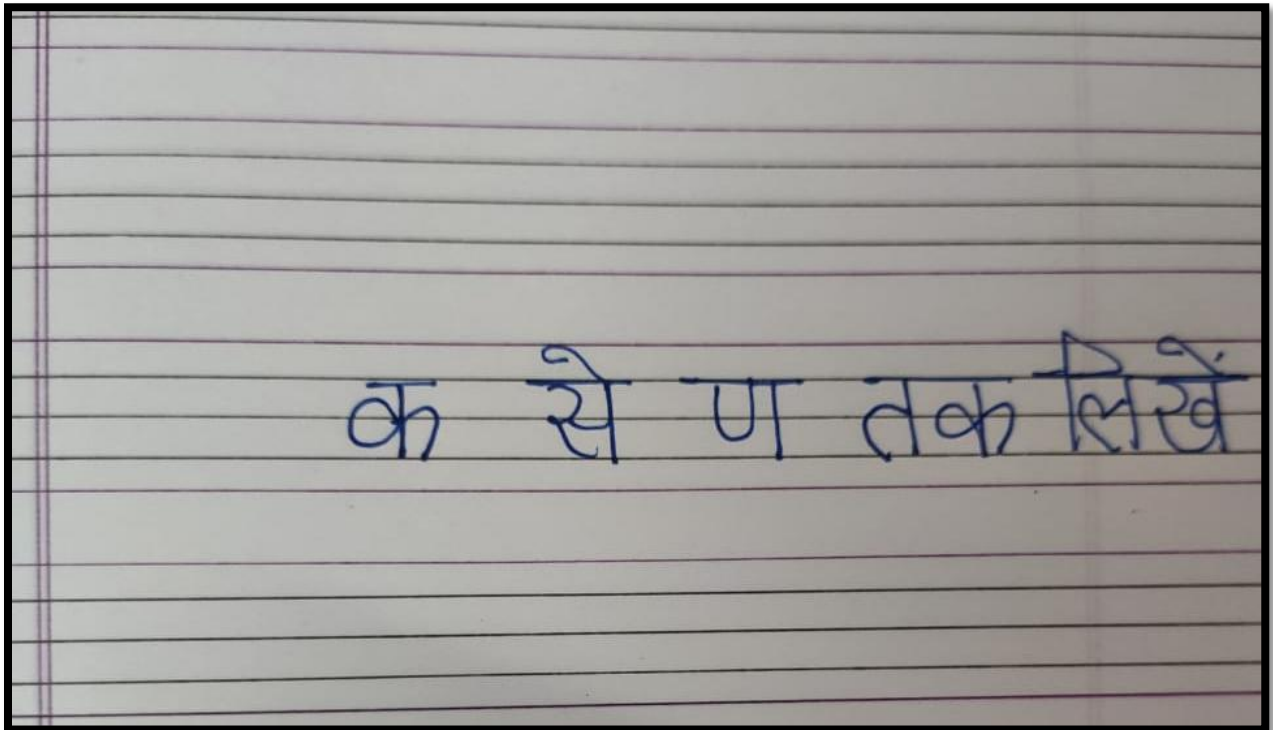 क से ण तक लिखें